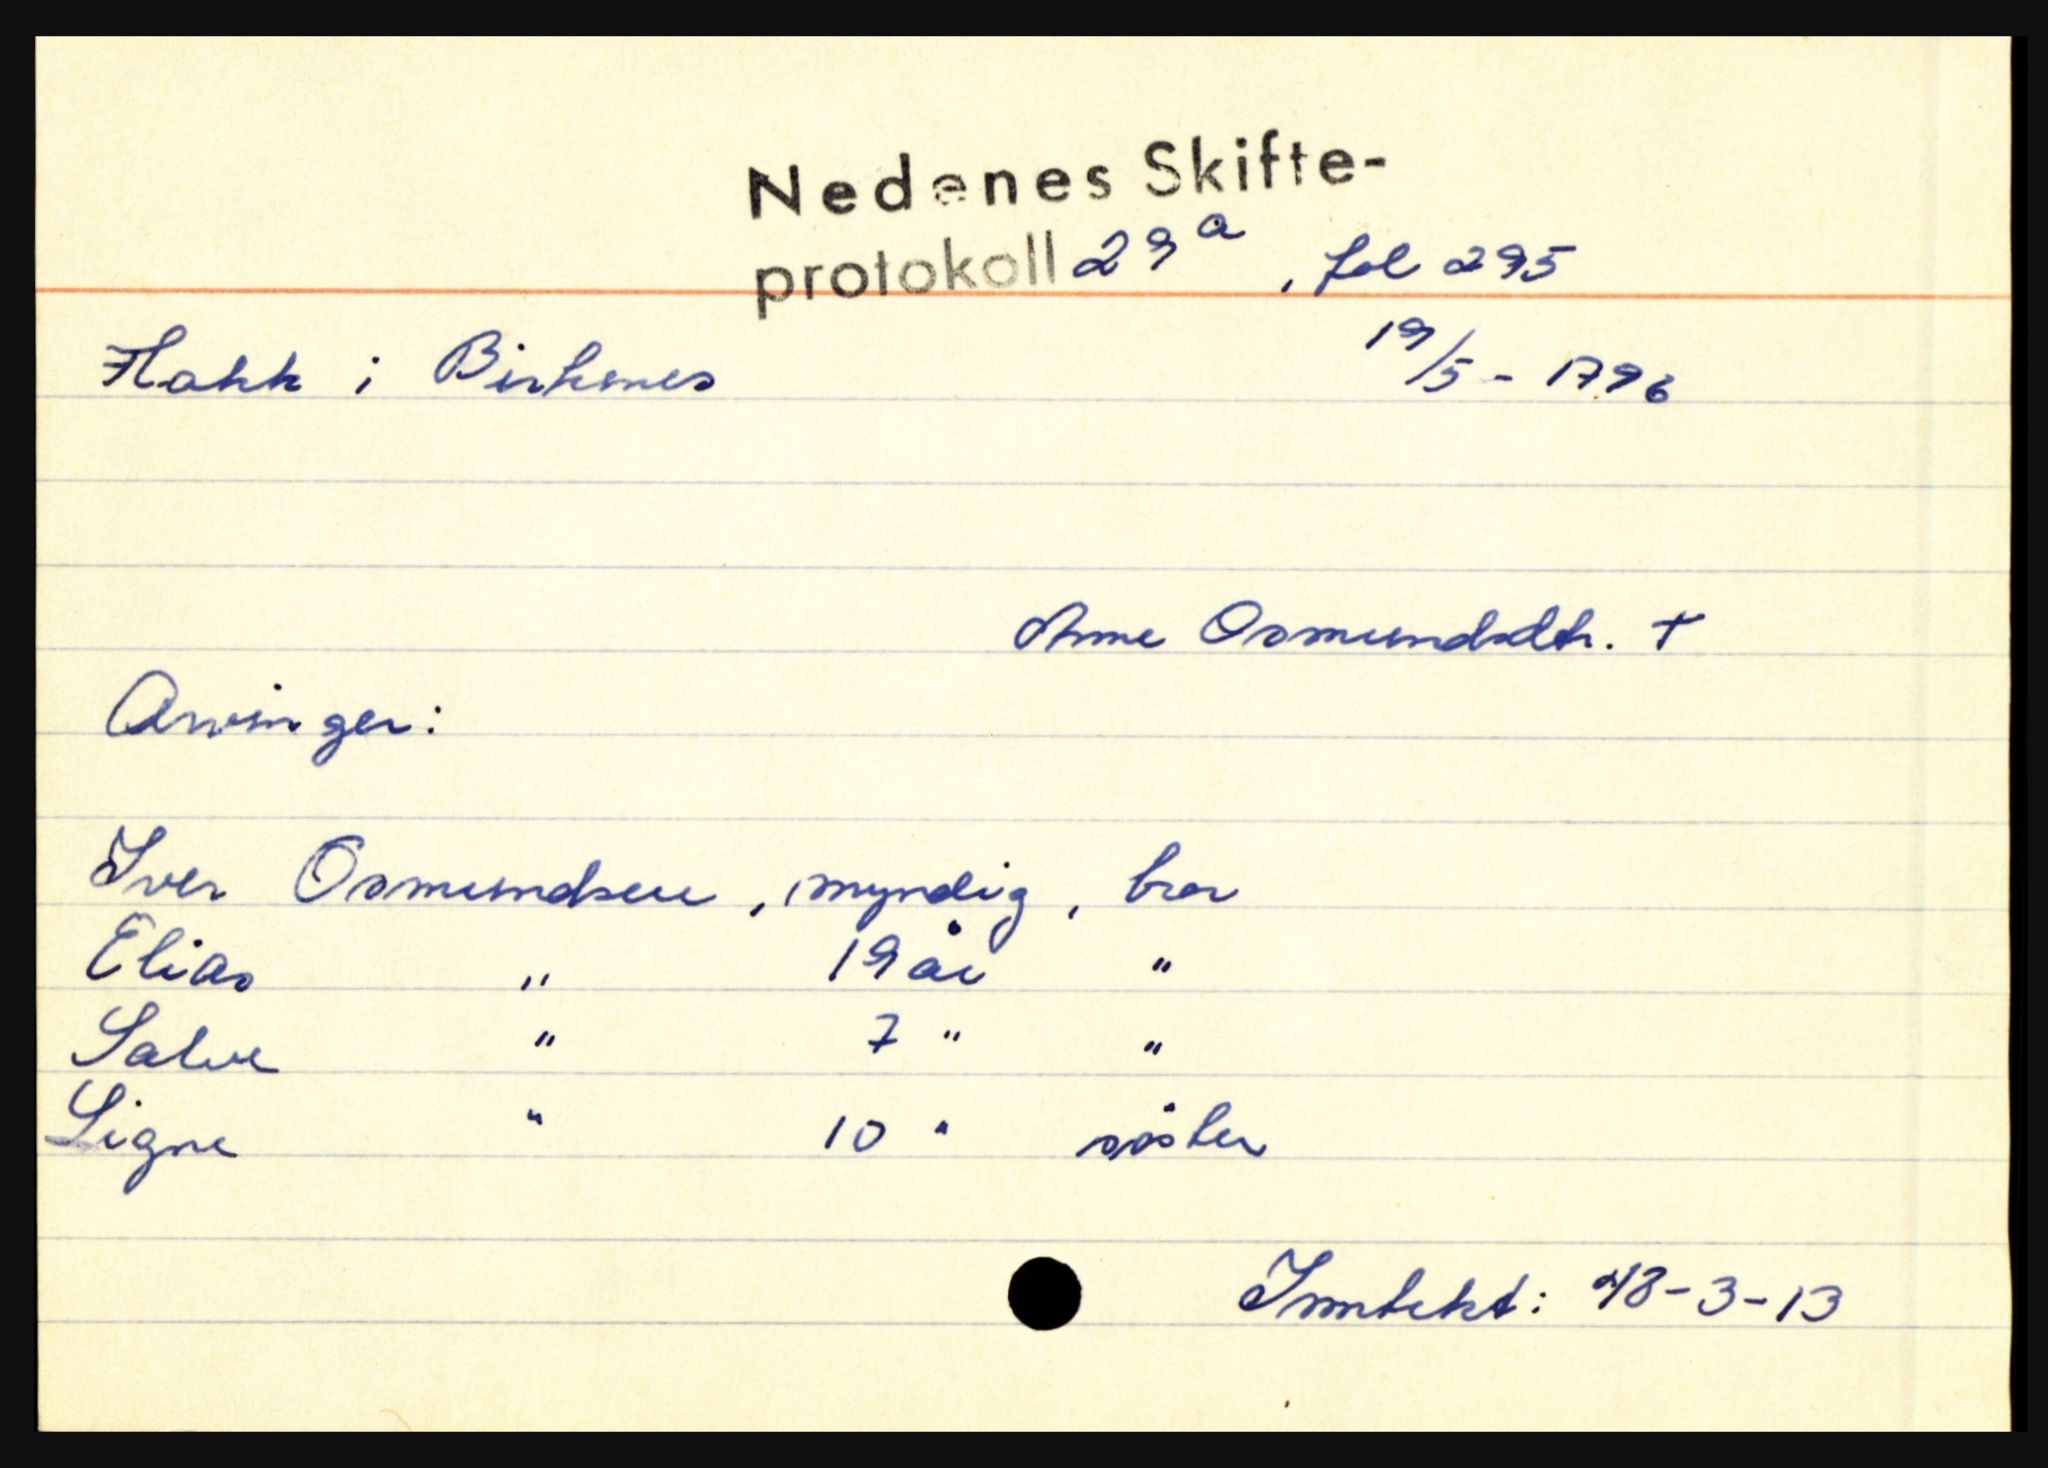 Nedenes Skifte-
protokoll 29 a, fol 295
Flakk i Birkenes 19/5 - 1796
Anne Osmundsdtr. +
Arvinger:
Iver Osmundsen, myndig, bror
Elias " 19 år "
Salve " 7 " "
Signe " 10 " søster
Inntekt: 48-3-13